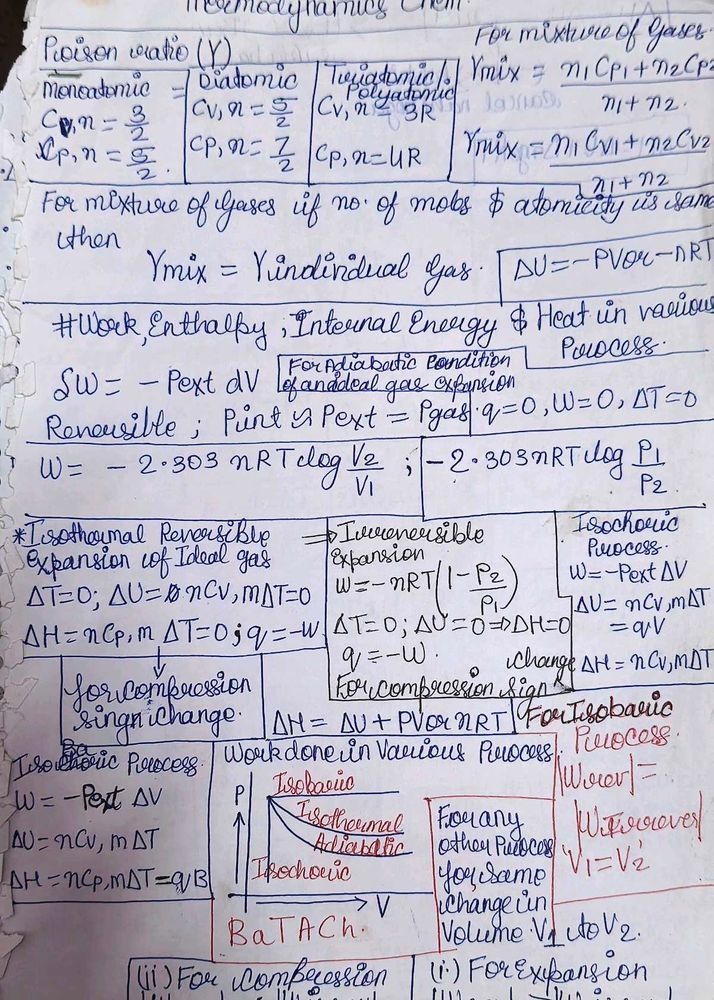 Thermodynamics Chem.
Poison ratio (γ)
Monoatomic =
Cv,n = 3/2
Cp,n = 5/2.
Diatomic
Cv,n = 5/2
Cp,n = 7/2
Triatomic/.
Polyatomic
Cv,n = 3R
Cp,n = 4R
For mixture of Gases.
γmix = n1Cp1 + n2Cp2 / n1 + n2.
γmix = n1Cv1 + n2Cv2 / n1 + n2
For mixture of Gases if no. of mobs $ atomicity is same
then
γmix = γindindual gas.
ΔU = -PV or -nRT
# Work, Enthalpy, Internal Energy $ Heat in various
Process.
δW = -Pext dV
For Adiabatic Condition
of an ideal gas expansion
q=0, W=0, ΔT=0
Renersible; Pint ≈ Pext = Pgas.
W = - 2.303 nRT log V2/V1 ; - 2.303 nRT log P1/P2.
*Isothermal Reversible
Expansion of Ideal gas
ΔT=0; ΔU= nCv,mΔT=0
ΔH = nCp,m ΔT=0; q=-W.
for compression
singn change.
⇒ Irrenersible
Expansion
W = -nRT(1 - P2/P1)
ΔT=0; ΔU=0 ⇒ ΔH=0
q=-W.
For compression sign change
Isochoric
Process.
W = -Pext ΔV
ΔU = nCv,mΔT
= qV
ΔH = nCv,mΔT
ΔH = ΔU + PV or nRT
For Isobaric
Process.
|Wrev| =
|WIrrever|
V1 = V2
Isobaric Process.
W = -Pext ΔV
ΔU = nCv,mΔT
ΔH = nCp,mΔT = qB
Work done in Various Process.
P
Isobaric
Isothermal
Adiabatic
Isochoric
V
BaTACh.
For any
other Process
for same
change in
Volume V1 to V2.
(ii) For Compression
(i) For Expansion